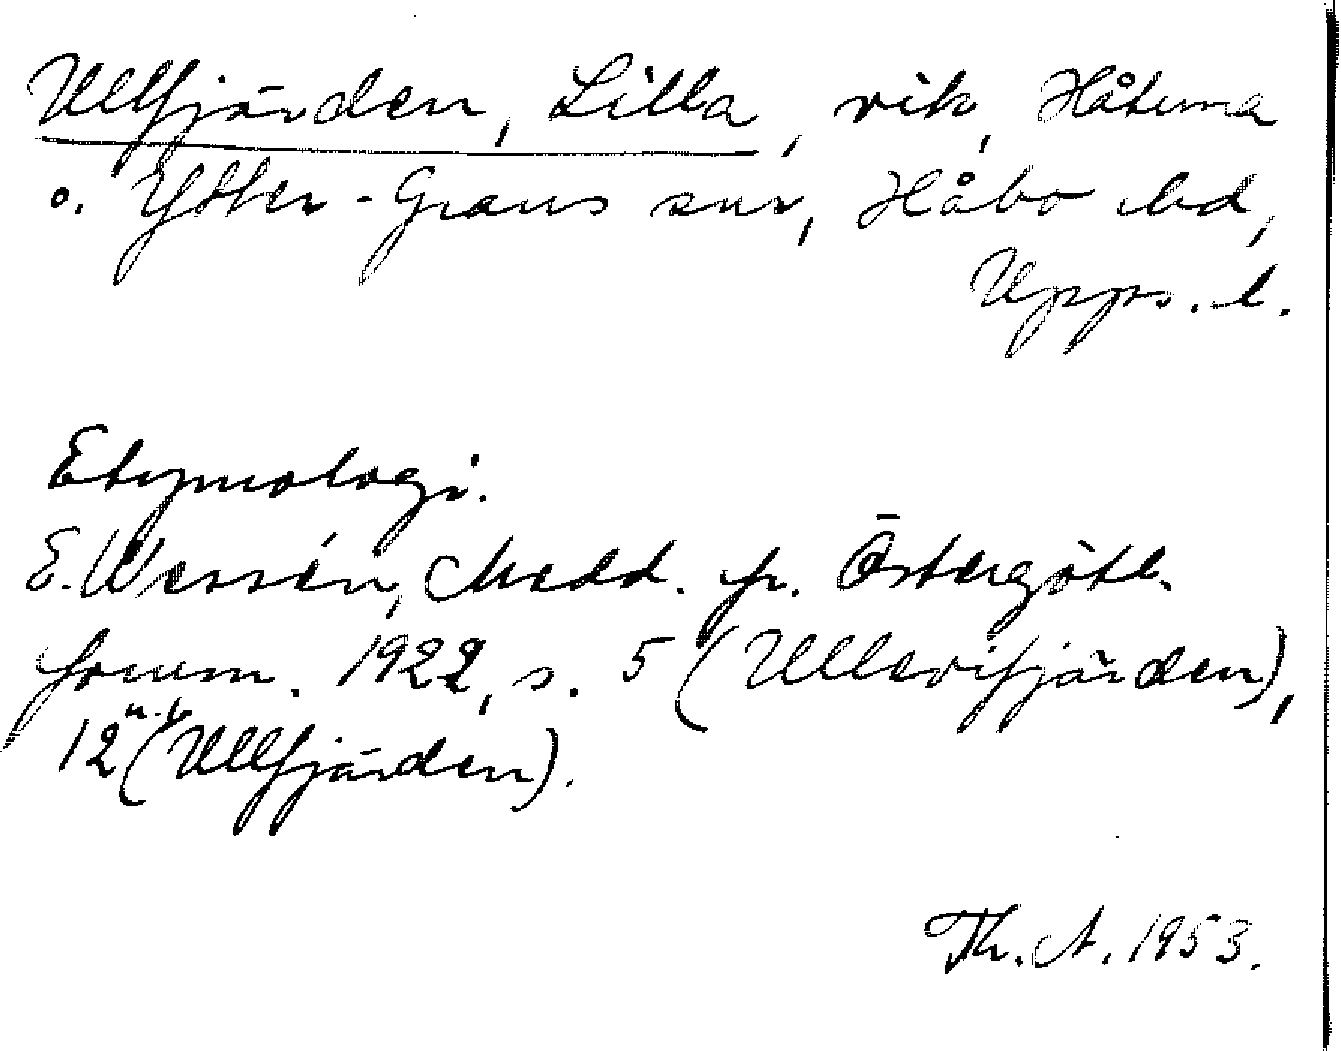 Ullfjärden, Lilla, vik, Håtuna
o. Ytter-Grans snr, Håbo hd,
Upps. l.
Etymologi.
E. Wessén, Medd. fr. Östergötl.
fornm. 1922, s. 5 (Ullevifjärden),
12 n. 6 (Ullfjärden).
Th. A. 1953.